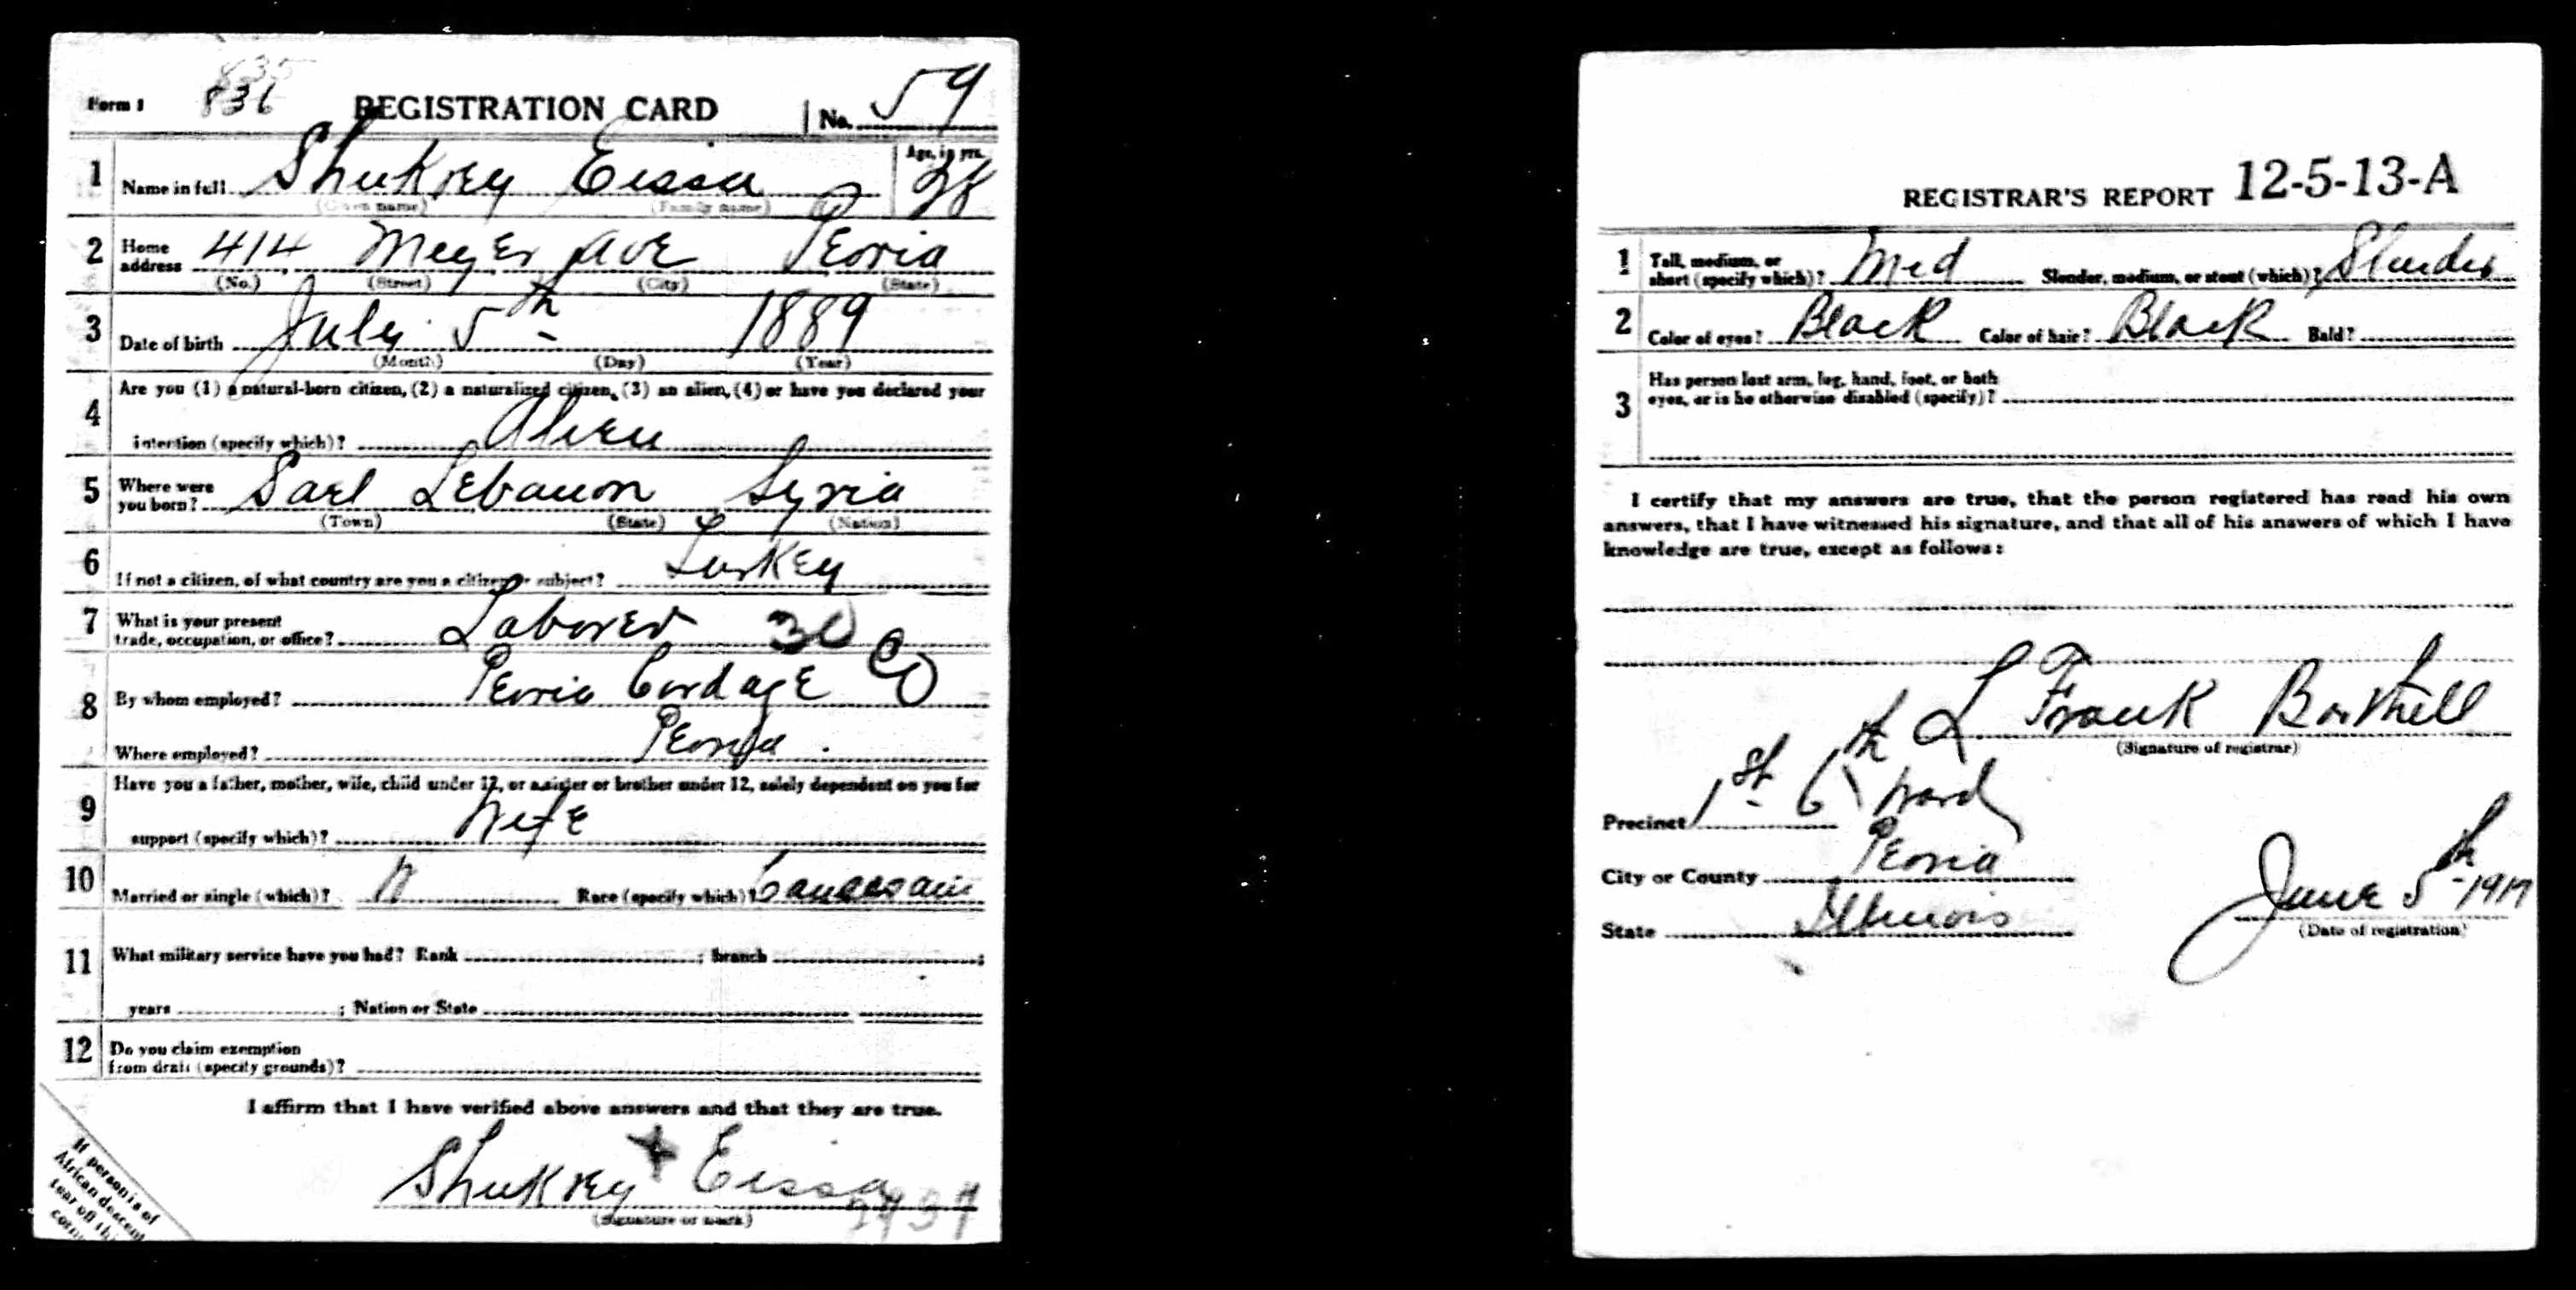 835
Form 1 836 REGISTRATION CARD No. 59
1 Name in full Shukrey Eissa Age, in yrs. 28
(Given name) (Family name)
2 Home address 414 Meyer Ave Peoria
(No.) (Street) (City) (State)
3 Date of birth July 5th 1889
(Month) (Day) (Year)
4 Are you (1) a natural-born citizen, (2) a naturalized citizen, (3) an alien, (4) or have you declared your
intention (specify which)? Alien
5 Where were you born? Sarl Lebanon Syria
(Town) (State) (Nation)
6 If not a citizen, of what country are you a citizen or subject? Turkey
7 What is your present trade, occupation, or office? Laborer 30
8 By whom employed? Peoria Cordage Co
Where employed? Peoria
9 Have you a father, mother, wife, child under 12, or a sister or brother under 12, solely dependent on you for
support (specify which)? Wife
10 Married or single (which)? Race (specify which)?
11 What military service have you had? Rank ; branch ;
years ; Nation or State
12 Do you claim exemption
from draft (specify grounds)?
I affirm that I have verified above answers and that they are true.
Shukrey + Eissa
(Signature or mark)
If person is of
African descent
tear off this
corner
REGISTRAR'S REPORT 12-5-13-A
1 Tall, medium, or short (specify which)? Med Slender, medium, or stout (which)? Slender
2 Color of eyes? Black Color of hair? Black Bald?
3 Has person lost arm, leg, hand, foot, or both
eyes, or is he otherwise disabled (specify)?
I certify that my answers are true, that the person registered has read his own
answers, that I have witnessed his signature, and that all of his answers of which I have
knowledge are true, except as follows:
L Frank
(Signature of registrar)
Precinct 1st 6th Ward
City or County Peoria
State Illinois
June 5th 1917
(Date of registration)